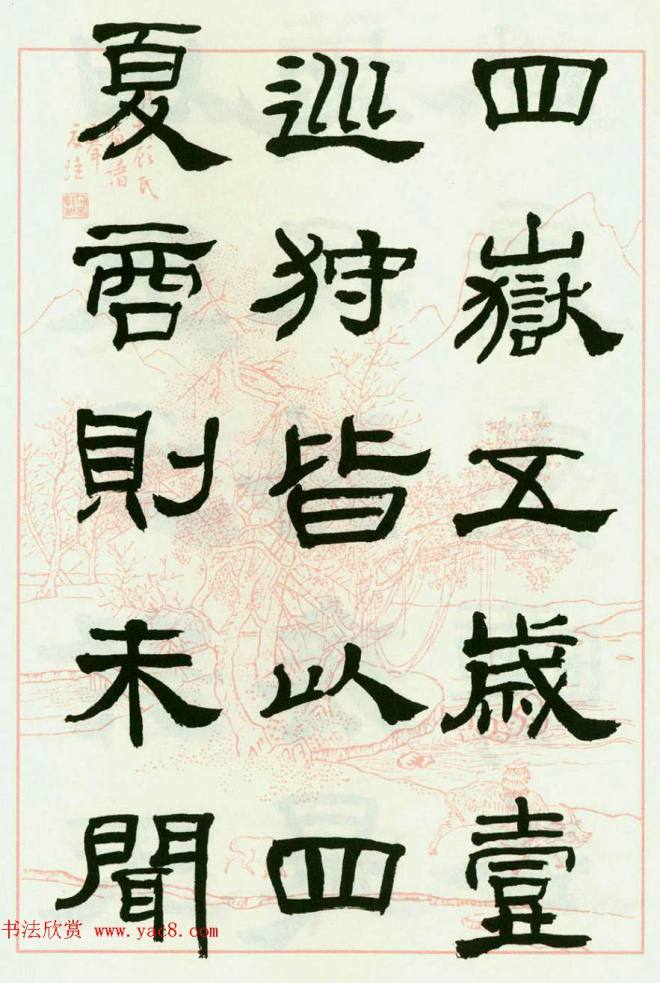 四嶽五歲壹
巡狩皆以四
夏商則未聞
书法欣赏 www.yac8.com